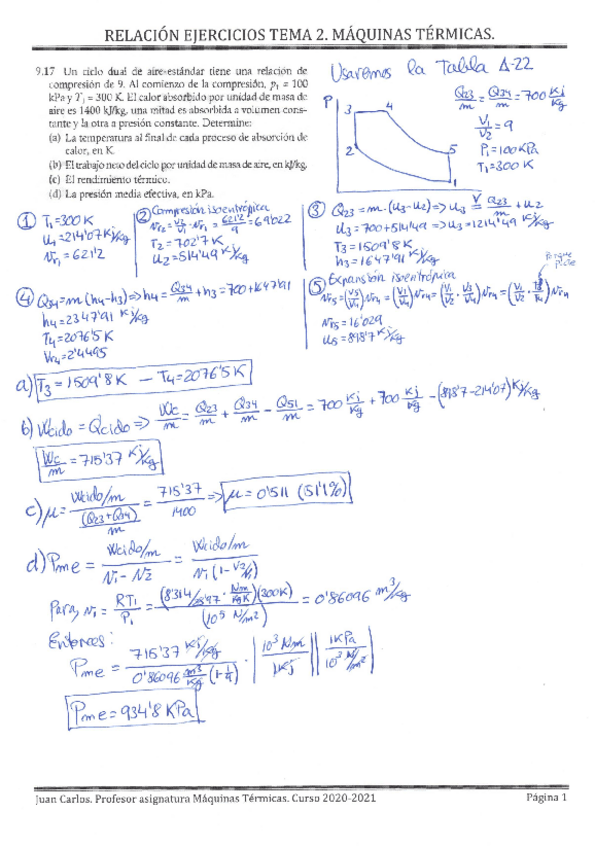 RELACIÓN EJERCICIOS TEMA 2. MÁQUINAS TÉRMICAS.
9.17 Un ciclo dual de aire-estándar tiene una relación de
compresión de 9. Al comienzo de la compresión, p₁ = 100
kPa y T₁ = 300 K. El calor absorbido por unidad de masa de
aire es 1400 kJ/kg, una mitad es absorbida a volumen cons-
tante y la otra a presión constante. Determine:
(a) La temperatura al final de cada proceso de absorción de
calor, en K.
(b) El trabajo neto del ciclo por unidad de masa de aire, en kJ/kg.
(c) El rendimiento térmico.
(d) La presión media efectiva, en kPa.
Usaremos la Tabla A-22
P
3
4
2
5
1
Q23/m = Q34/m = 700 KJ/Kg
V1/V2 = 9
P1 = 100 KPa
T1 = 300 K
① T1 = 300 K
u1 = 214'07 KJ/Kg
Vr1 = 621'2
② Compresión isoentrópica
Vr2 = V2/V1 · Vr1 = 621'2/9 = 69'022
T2 = 702'7 K
u2 = 514'49 KJ/Kg
③ Q23 = m·(u3-u2) => u3 = Q23/m + u2
u3 = 700 + 514'49 => u3 = 1214'49 KJ/Kg
T3 = 1509'8 K
h3 = 1647'91 KJ/Kg
④ Q34 = m(h4-h3) => h4 = Q34/m + h3 = 700 + 1647'91
h4 = 2347'91 KJ/Kg
T4 = 2076'5 K
Vr4 = 2'4495
⑤ Expansión isoentrópica
porque P3=P4
Vr5 = (V5/V4) Vr4 = (V1/V4) Vr4 = (V1/V2 · V3/V4) Vr4 = (V1/V2 · T3/T4) Vr4
Vr5 = 16'029
u5 = 818'7 KJ/Kg
a) T3 = 1509'8 K — T4 = 2076'5 K
b) Wciclo = Qciclo => Wc/m = Q23/m + Q34/m - Q51/m = 700 KJ/Kg + 700 KJ/Kg - (818'7 - 214'07) KJ/Kg
Wc/m = 715'37 KJ/Kg
c) μ = (Wciclo/m) / ((Q23+Q34)/m) = 715'37/1400 => μ = 0'511 (51'1%)
d) Pme = (Wciclo/m)/(V1 - V2) = (Wciclo/m)/(V1(1 - V2/V1))
Para, V1 = RT1/P1 = (8'314/28'97 · Nm/KgK)(300K)/(10⁵ N/m²) = 0'86096 m³/Kg
Entonces:
Pme = 715'37 KJ/Kg / (0'86096 m³/Kg (1 - 1/9)) · |10³ Nm/1KJ| |1KPa/10³ N/m²|
Pme = 934'8 KPa
Juan Carlos. Profesor asignatura Máquinas Térmicas. Curso 2020-2021
Página 1